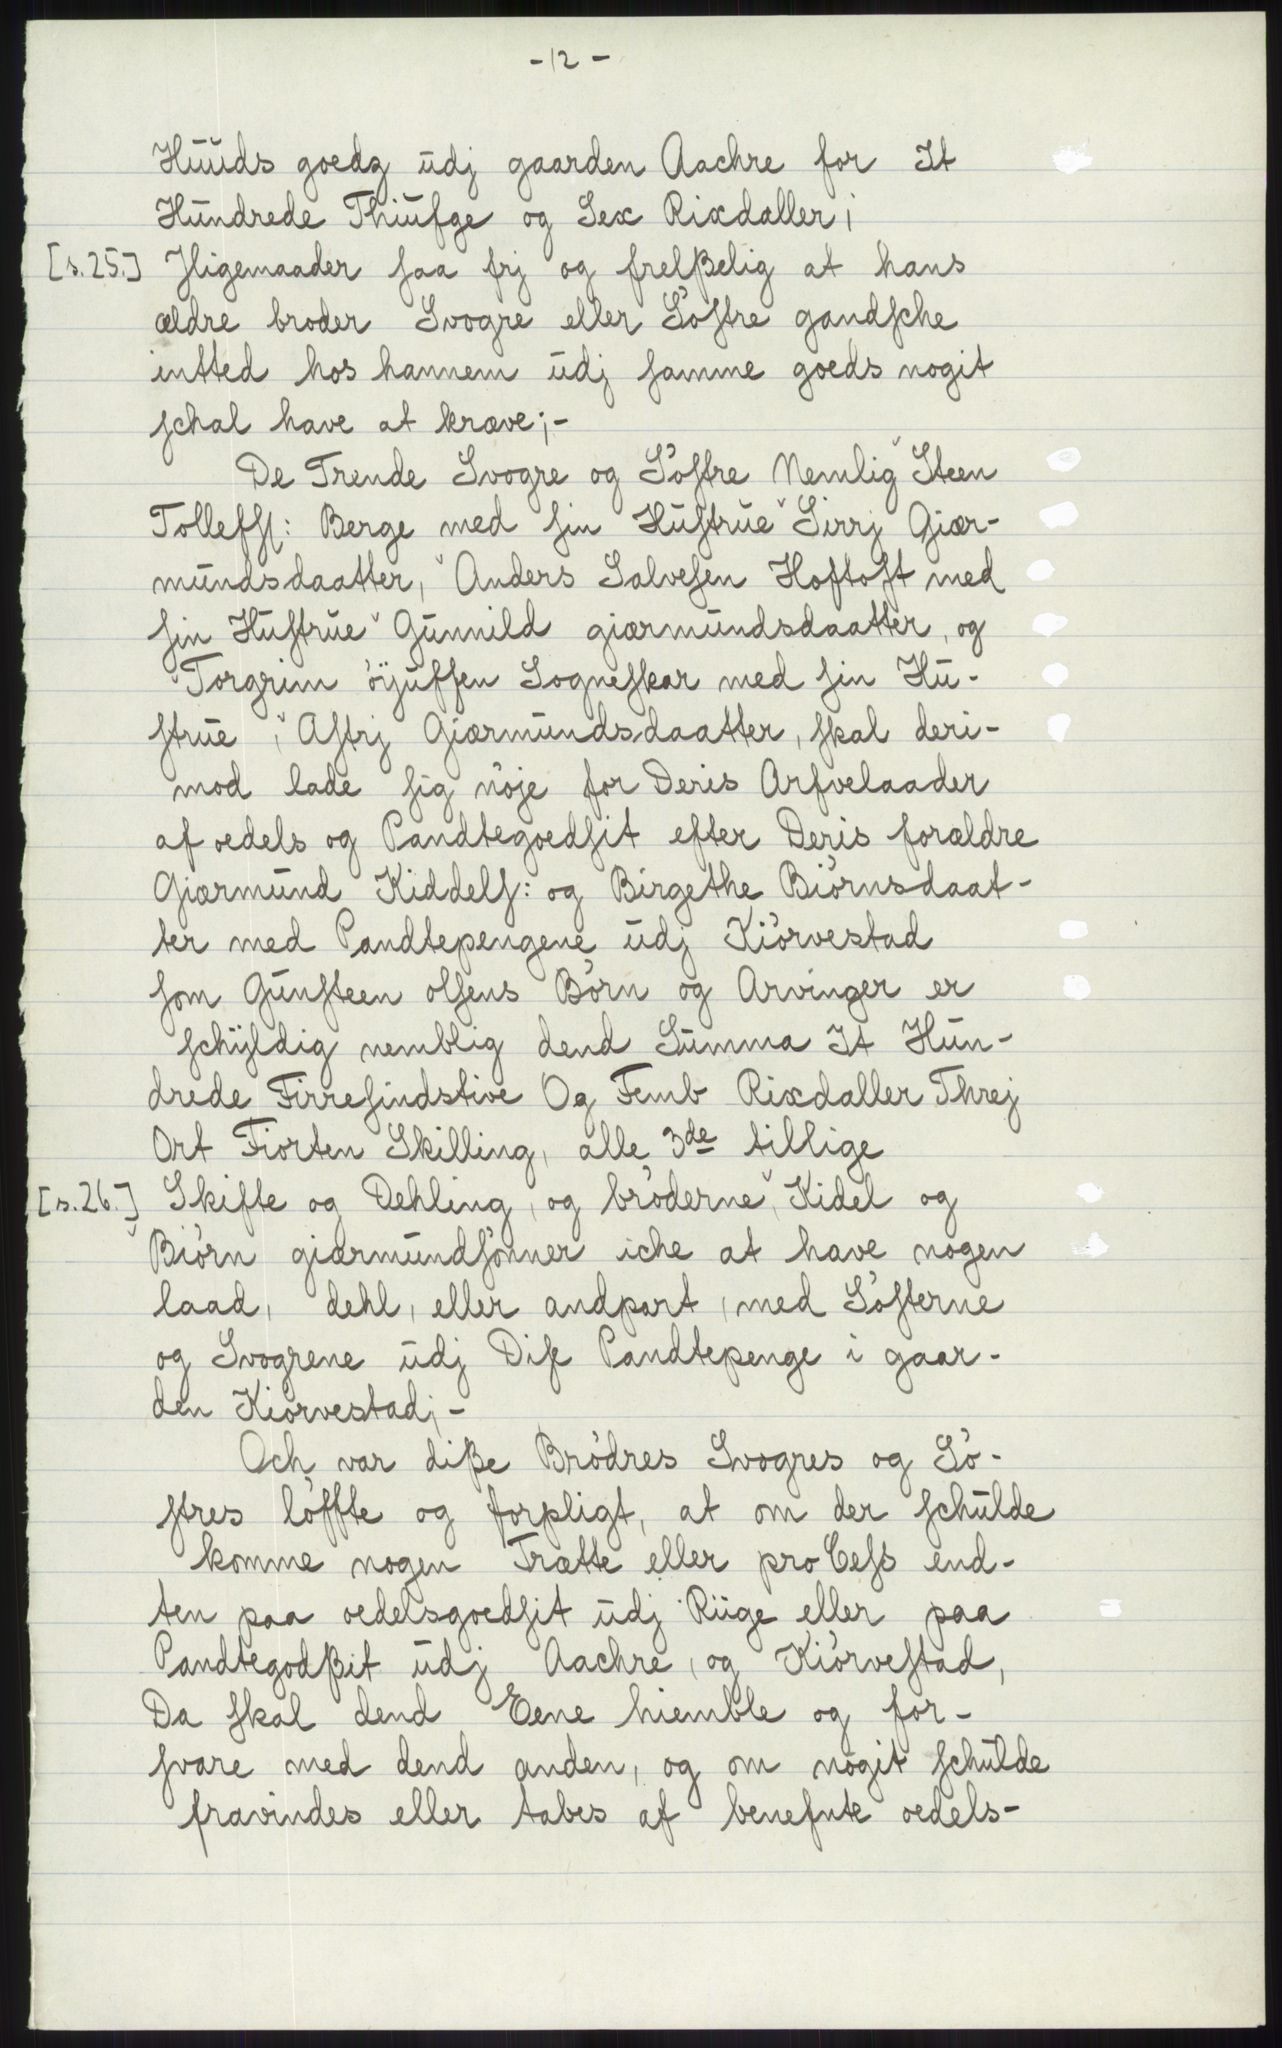 -12-
Huuds goedz udj gaarden Aachre for It
Hundrede Thiufge og Sex Rixdaller;
[s.25.] Iligemaader saa frj og frelßelig at hans
ældre broder Svogre eller Söstre gandsche
intted hos hannem udj samme goeds nogit
schal have at kræve;-
De Trende Svogre og Söstre Nemlig Steen
Tollefs: Berge med sin Hustrue Sirrj Giær-
mundsdaatter, Anders Salvesen Hoftoft med
sin Hustrue Gunnild giærmundsdaatter, og
Torgrim öÿuffsen Sogneskar med sin Hu-
strue, Astrj Giærmundsdaatter, skal deri-
mod lade sig nöje for Deris Arfvelaader
af oedels og Pandtegoedsit efter Deris forældre
Giærmund Kiddels: og Birgethe Biörnsdaat-
ter med Pandtepengene udj Kiörvestad
som Gunsteen olsens Börn og Arvinger er
schÿldig nemblig dend Summa It Hun-
drede Firresindstive Og Femb Rixdaller Threj
Ort Fiorten Skilling, alle 3de tillige
[s.26.] Skifte og Dehling, og bröderne, Kidel og
Biörn giærmundsönner iche at have nogen
laad, dehl, eller andpart, med Sösterne
og Svogrene udj Disse Pandtepenge i gaar-
den Kiörvestad;-
Och var diße Brödres Svogres og Sö-
stres löffte og forpligt, at om der schulde
komme nogen Trætte eller proCess end-
ten paa oedelsgoedsit udj Riige eller paa
Pandtegodßit udj Aachre, og Kiörvestad,
Da skal dend Eene hiemble og for-
svare med dend anden, og om nogit schulde
fravindes eller tabes af benefnte oedels-